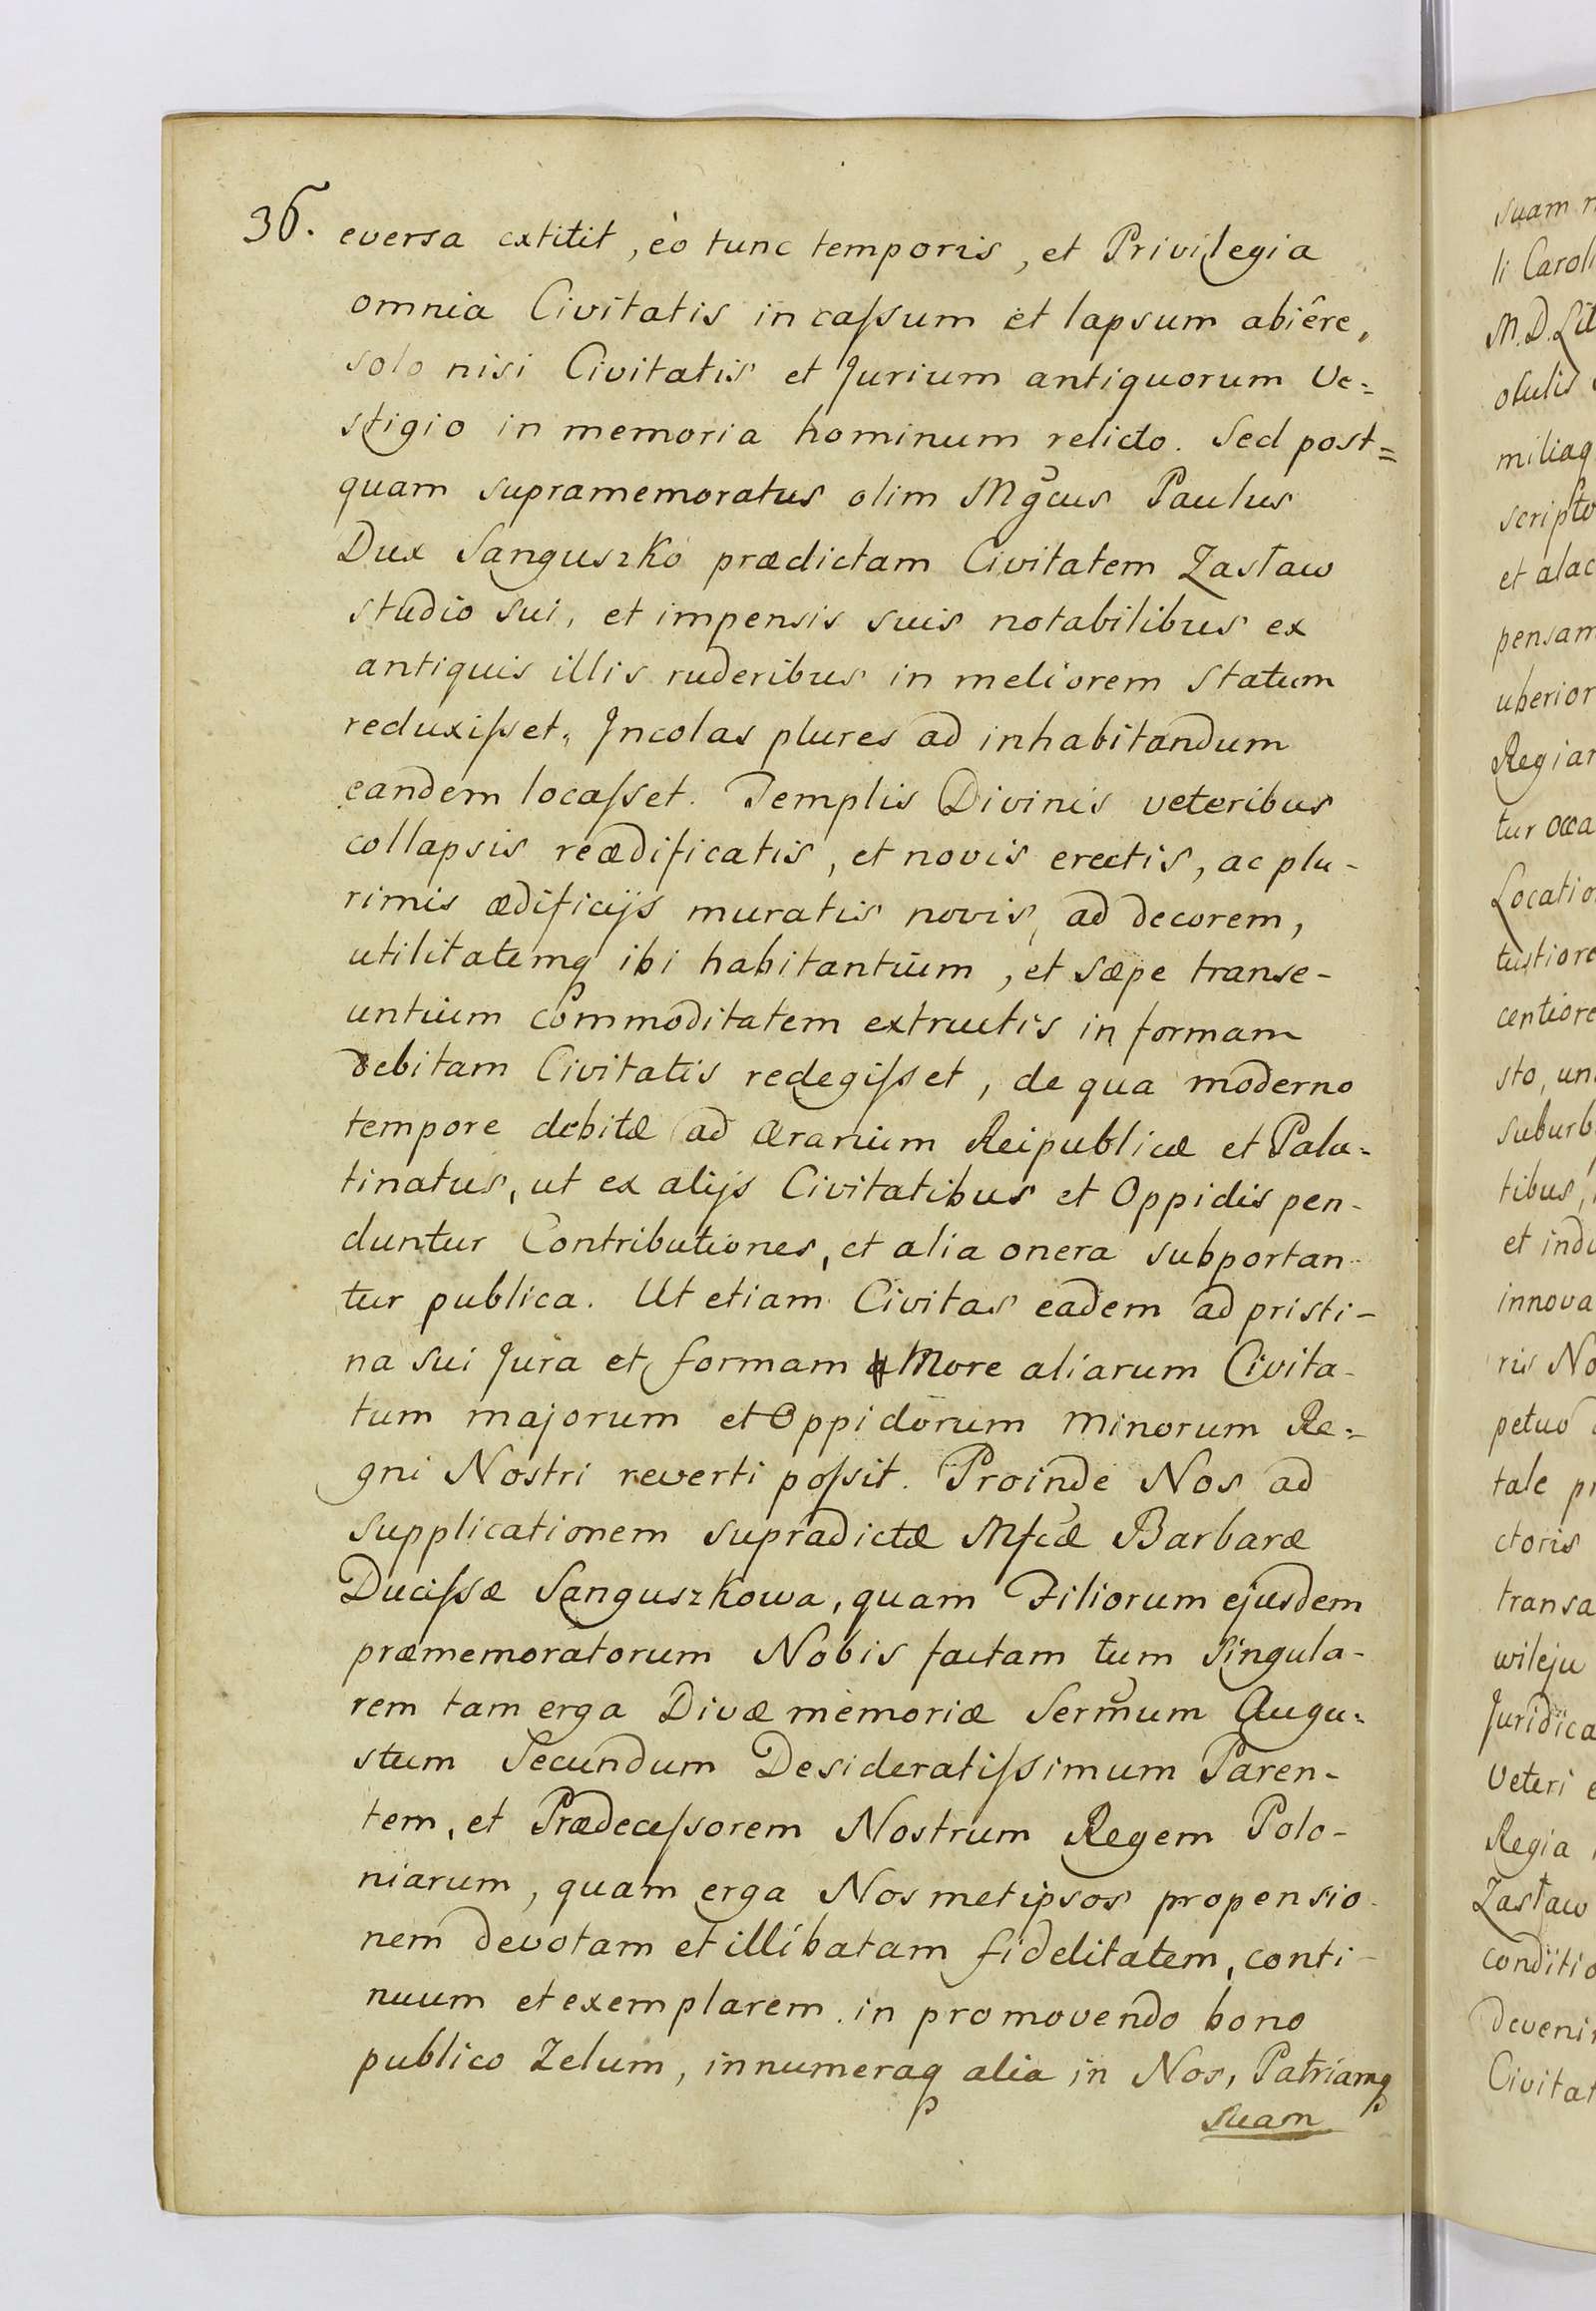 36.
eversa extitit, èo tunc temporis, et Privilegia
omnia Civitatis in caſsum et lapsum abiêre,
solo nisi Civitatis et Jurium antiquorum Ve=
stigio in memoria hominum relicto. Sed post=
quam supramemoratus olim Mgcus Paulus
Dux Sanguszko prædictam Civitatem Zasław
studio sui, et impensis suis notabilibus ex
antiquis illis ruderibus in meliorem statum
reduxiſset, Incolas plures ad inhabitandum
eandem locaſset. Templis Divinis veteribus
collapsis reædificatis, et novis erectis, ac plu-
rimis ædificijs muratis novis, ad decorem,
utilitatemq ibi habitantium, et sæpe transe-
untium commoditatem extructis in formam
debitam Civitatis redegiſset, de qua moderno
tempore debitæ ad ærarium Reipublicæ et Pala-
tinatus, ut ex alijs Civitatibus et Oppidis pen-
duntur Contributiones, et alia onera subportan-
tur publica. Ut etiam Civitas eadem ad pristi-
na sui Jura et formam More aliarum Civita-
tum majorum et Oppidorum minorum Re=
gni Nostri reverti poſsit. Proinde Nos ad
supplicationem supradictæ Mfcæ Barbaræ
Duciſsæ Sanguszkowa, quam Filiorum ejusdem
præmemoratorum Nobis factam tum singula-
rem tam erga Divæ memoriæ Sermum Augu=
stum Secundum Desideratiſsimum Paren-
tem, et Prædeceſsorem Nostrum Regem Polo-
niarum, quam erga Nos metipsos propensio-
nem devotam et illibatam fidelitatem, conti-
nuum et exemplarem in promovendo bono
publico Zelum, innumeraq alia in Nos, Patriamq
suam
suam
li Caroli
M.D. Lit
miliaq
scripto
et alac
pensam
uberior
Regiar
tur occa
Locatio
tustiore
centiore
sto, un
suburb
tibus,
et indu
innova
ris No
petuo
tale pr
ctoris
transa
wileju
Juridica
Veteri e
Regia
Zasław
conditio
devenir
Civitat